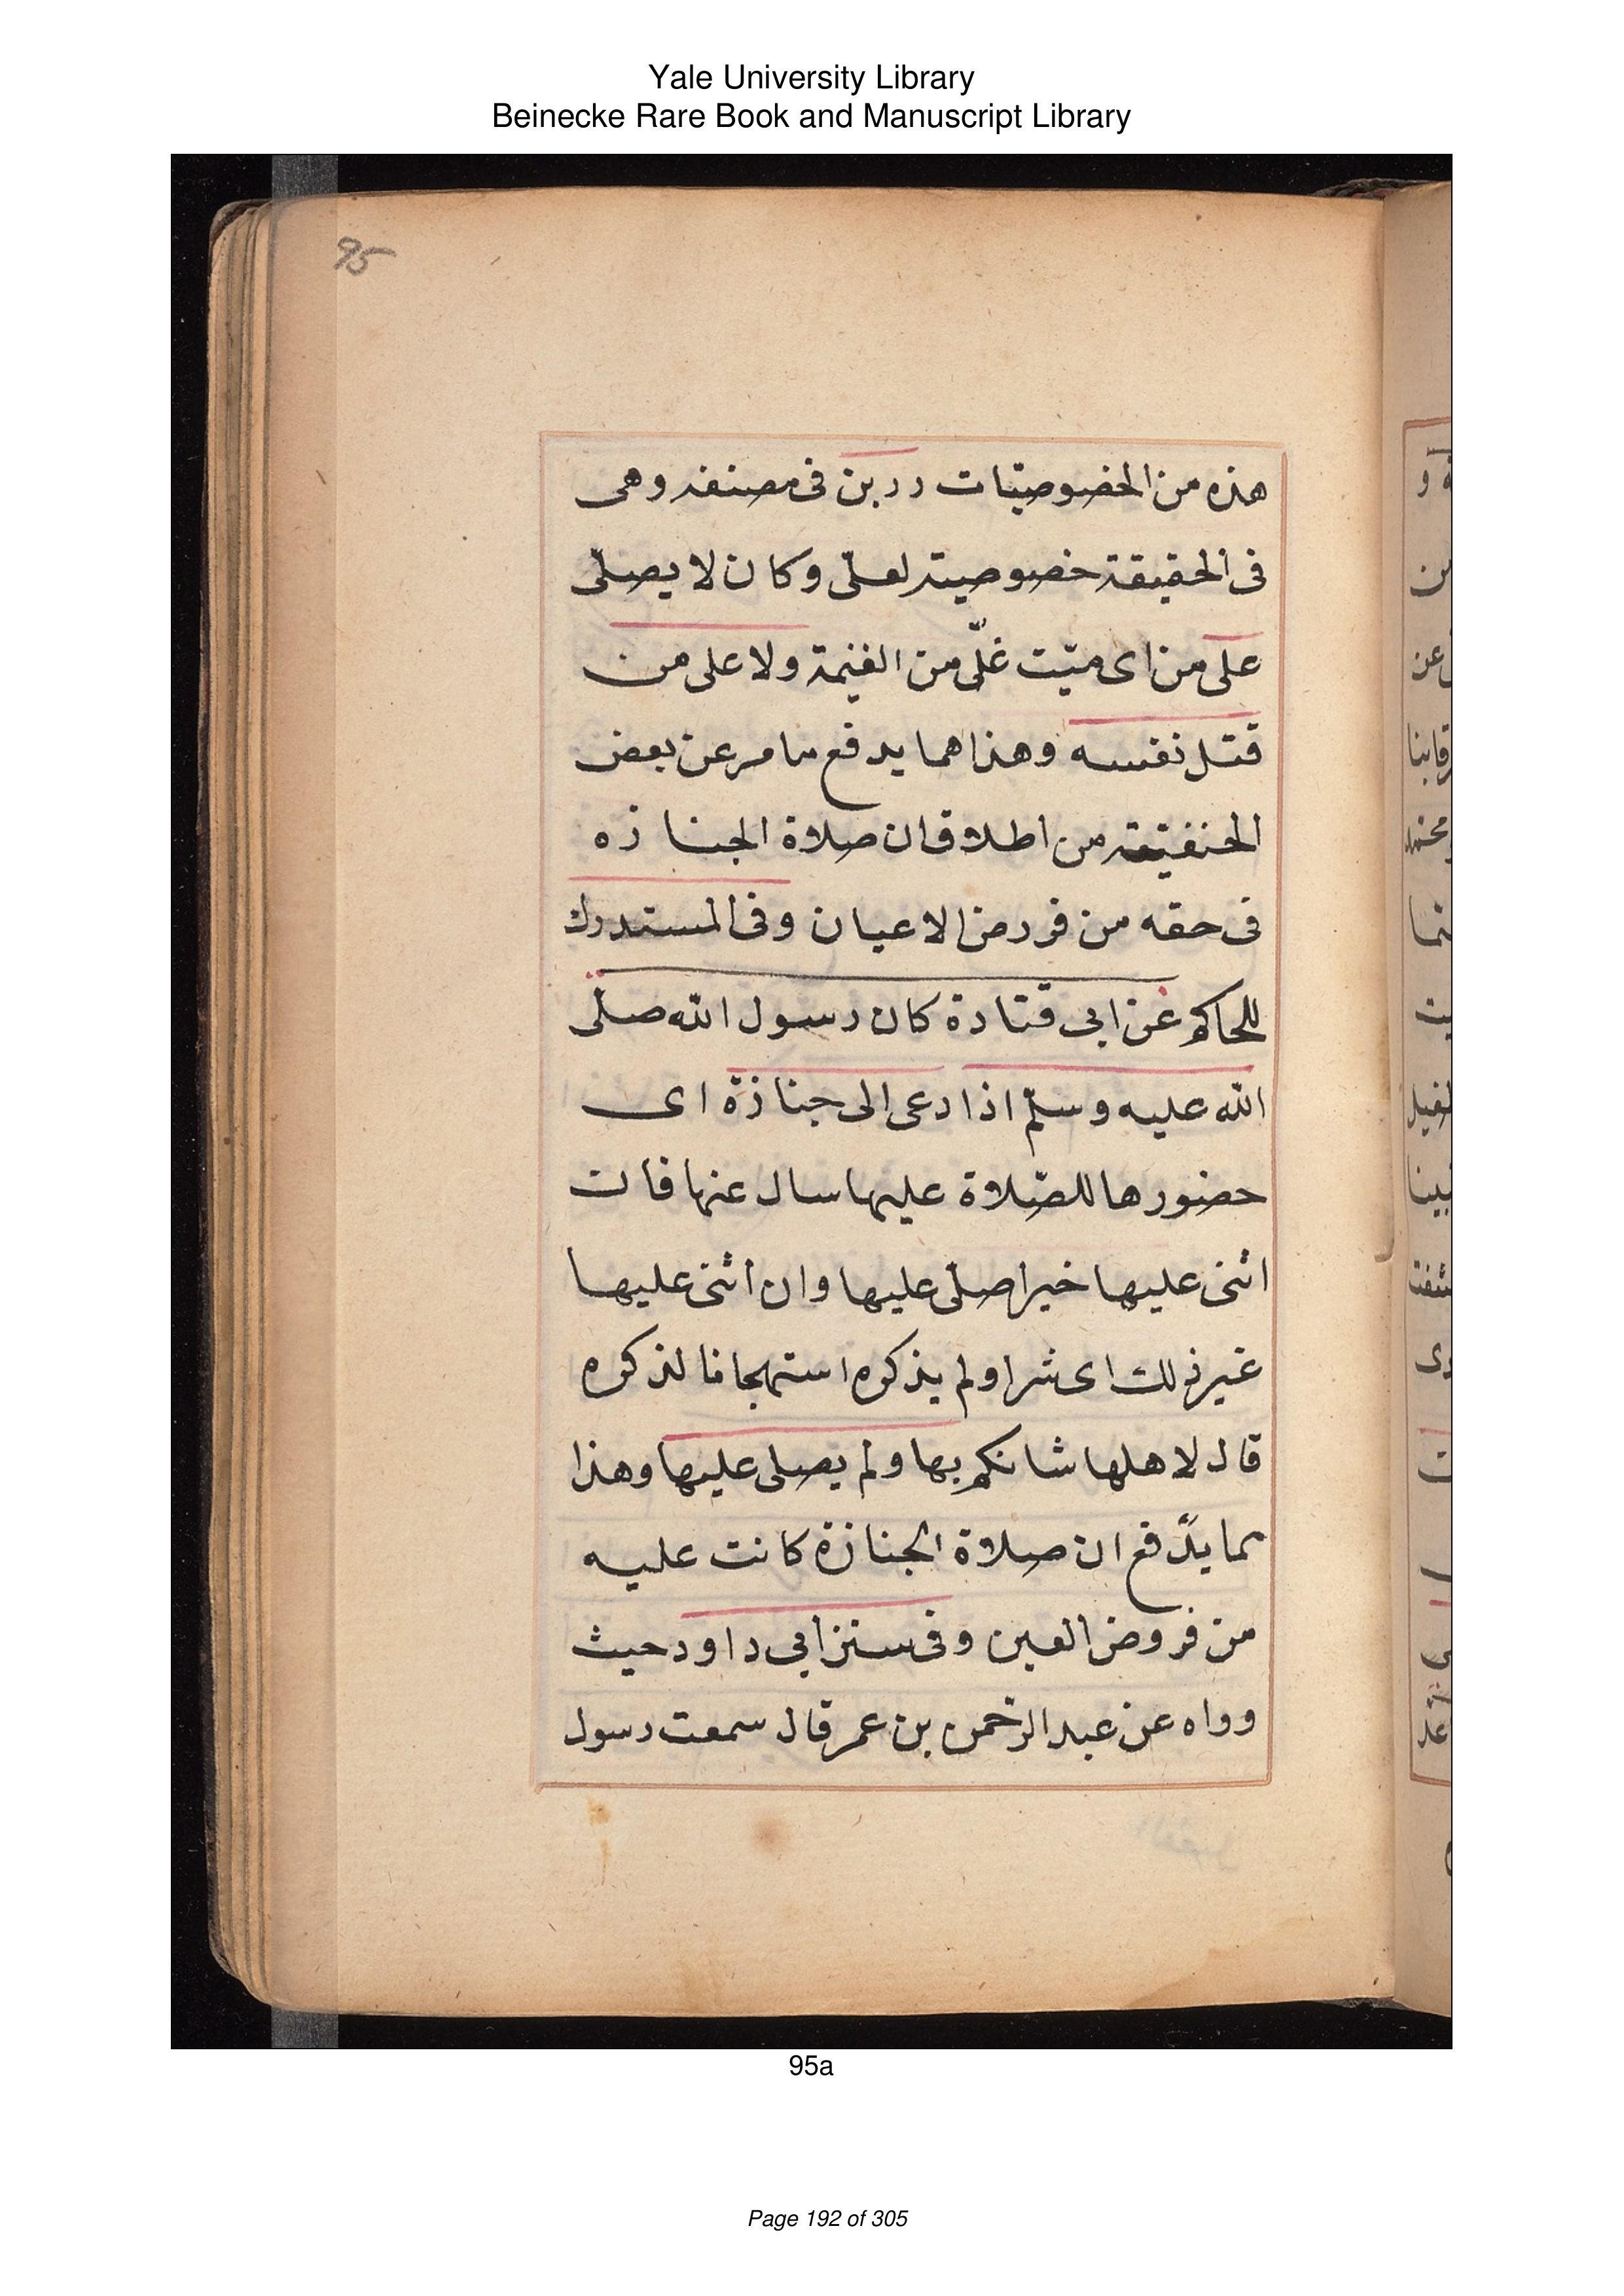 Yale University Library
Beinecke Rare Book and Manuscript Library
95
هذه من الخصوصيّات رزين فى مصنفه وهى
فى الحقيقة خصوصيته لعلىّ وكان لا يصلّى
على من اى ميّت غلّ من الغنيمة ولا على من
قتل نفسه وهذا مما يدفع ما مر عن بعض
الحنفيّة من اطلاق ان صلاة الجنازه
فى حقه من فروض الاعيان وفى المستدرك
للحاكم عن ابى قتادة كان رسول الله صلّى
الله عليه وسلّم اذا دعى الى جنازة اى
حضورها للصّلاة عليها سال عنها فان
اثنى عليها خيرا صلّى عليها وان اثنى عليها
غير ذلك اى شرا ولم يذكره استهجانا لذكره
قال لاهلها شانكم بها ولم يصلى عليها وهذا
مما يدّفع ان صلاة الجنازة كانت عليه
من فروض العين وفى سنن ابى داود حيث
وواه عن عبد الرّحمن بن عمر قال سمعت رسول
95a
Page 192 of 305